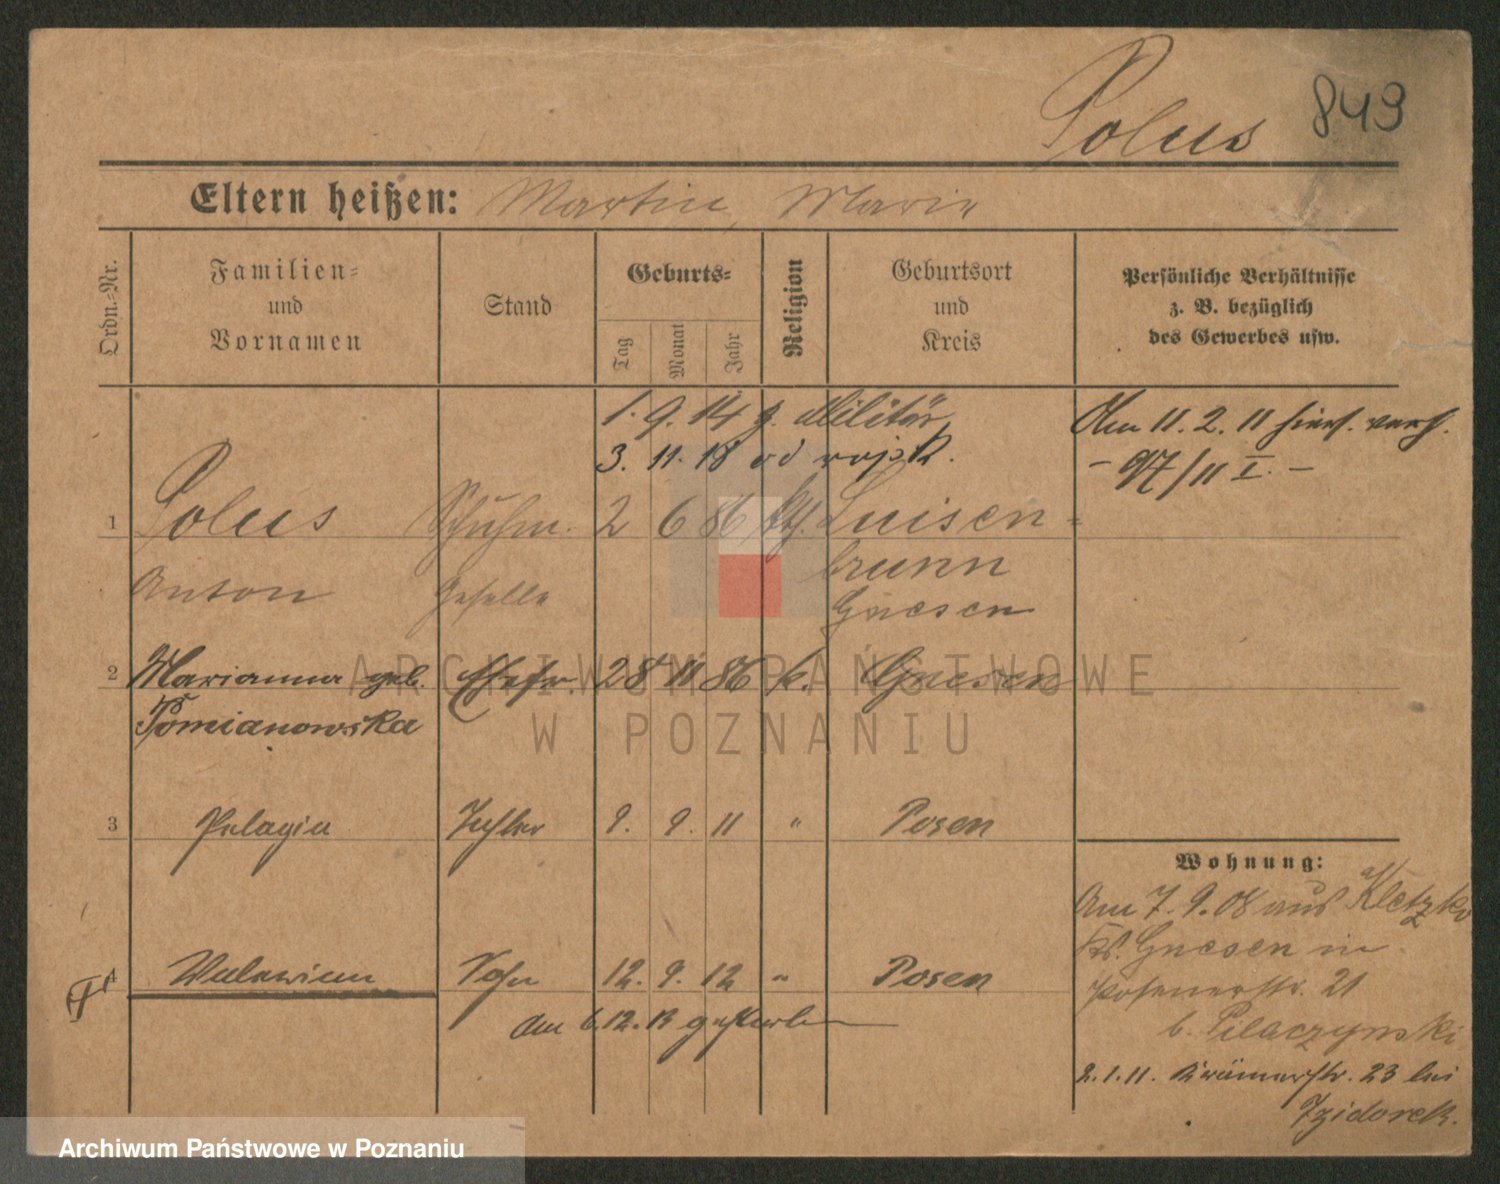 Polus 849
Eltern heißen: Martin, Marie
Ordn.-Nr.
Familien-
und
Vornamen
Stand
Geburts-
Tag
Monat
Jahr
Religion
Geburtsort
und
Kreis
Persönliche Verhältnisse
z. B. bezüglich
des Gewerbes usw.
1. 9. 14 z. Militär
3. 11. 18 od wojsk.
Am 11. 2. 11 hier verh.
- 97/11 I. -
1 Polus Schuhm. 2 6 86 kth. Luisen-
brunn
Anton Geselle Gnesen
2 Marianna geb. Ehefr. 28 11 86 k. Gnesen
Pomianowska
3 Pelagia Tochter 9. 9. 11 " Posen
4 Walerian Sohn 12. 9. 12 " Posen
am 6.12.13 gestorben
Wohnung:
Am 7. 9. 08 aus Kletzko
Kr. Gnesen in
Posenerstr. 21
b. Pilaczynski
2. 1. 11. Krämerstr. 23 bei
Izidorek.
ARCHIWUM PAŃSTWOWE
W POZNANIU
Archiwum Państwowe w Poznaniu